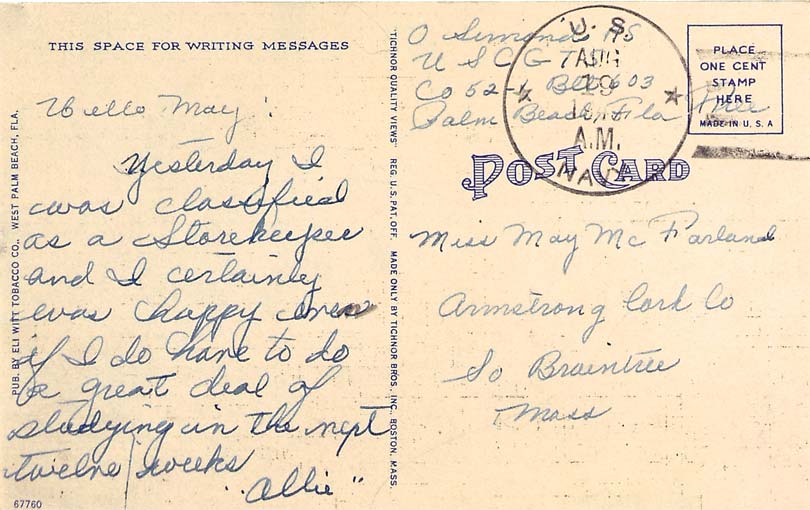 THIS SPACE FOR WRITING MESSAGES
Hello May!
Yesterday I
was classified
as a Storekeeper
and I certainly
was happy even
if I do have to do
a great deal of
studying in the next
twelve weeks
"Allie"
67760
PUB. BY ELI WITT TOBACCO CO., WEST PALM BEACH, FLA.
"TICHNOR QUALITY VIEWS" REG. U.S. PAT. OFF. MADE ONLY BY TICHNOR BROS. INC., BOSTON, MASS.
O Simonds AS
U S C G T
Co 52-1 603
Palm Beach, Fla
Free
U. S.
AUG
19
A.M.
NAVY
PLACE
ONE CENT
STAMP
HERE
MADE IN U. S. A
POST CARD
Miss May Mc Farland
Armstrong Cork Co
So Braintree
Mass